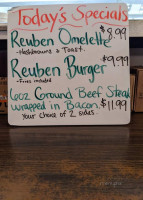 Today's Specials
Reuben Omelette $8.99
-Hashbrowns & Toast.
Reuben Burger $9.99
-Fries included
6oz Ground Beef Steak
wrapped in Bacon. $11.99
Your choice of 2 sides.